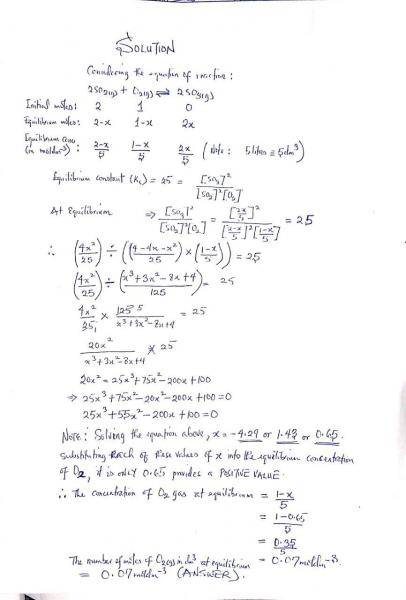 SOLUTION
Considering the equation of reaction:
2SO2(g) + O2(g) ⇌ 2SO3(g)
Initial moles: 2 1 0
Equilibrium moles: 2-x 1-x 2x
Equilibrium conc (in mol/dm³): 2-x/5 1-x/5 2x/5 (Note: 5 litres ≡ 5dm³)
Equilibrium constant (Kc) = 25 = [SO3]²/[SO2]²[O2]
At equilibrium ⇒ [SO3]²/[SO2]²[O2] = [2x/5]²/[2-x/5]²[1-x/5] = 25
∴ (4x²/25) ÷ ((4-4x-x²/25) × (1-x/5)) = 25
(4x²/25) ÷ (x³+3x²-8x+4/125) = 25
4x²/25 × 125 5/x³+3x²-8x+4 = 25
20x²/x³+3x²-8x+4 × 25
20x² = 25x³+75x²-200x+100
⇒ 25x³+75x²-20x²-200x+100=0
25x³+55x²-200x+100=0
NOTE: Solving the equation above, x = -4.29 or 1.43 or 0.65.
substituting each of these values of x into the equilibrium concentration
of O2, it is only 0.65 provides a POSITIVE VALUE.
∴ The concentration of O2 gas at equilibrium = 1-x/5
= 1-0.65/5
= 0.35/5
= 0.07mol/dm-3
The number of moles of O2(g) in dm³ at equilibrium
= 0.07mol/dm-3 (ANSWER).